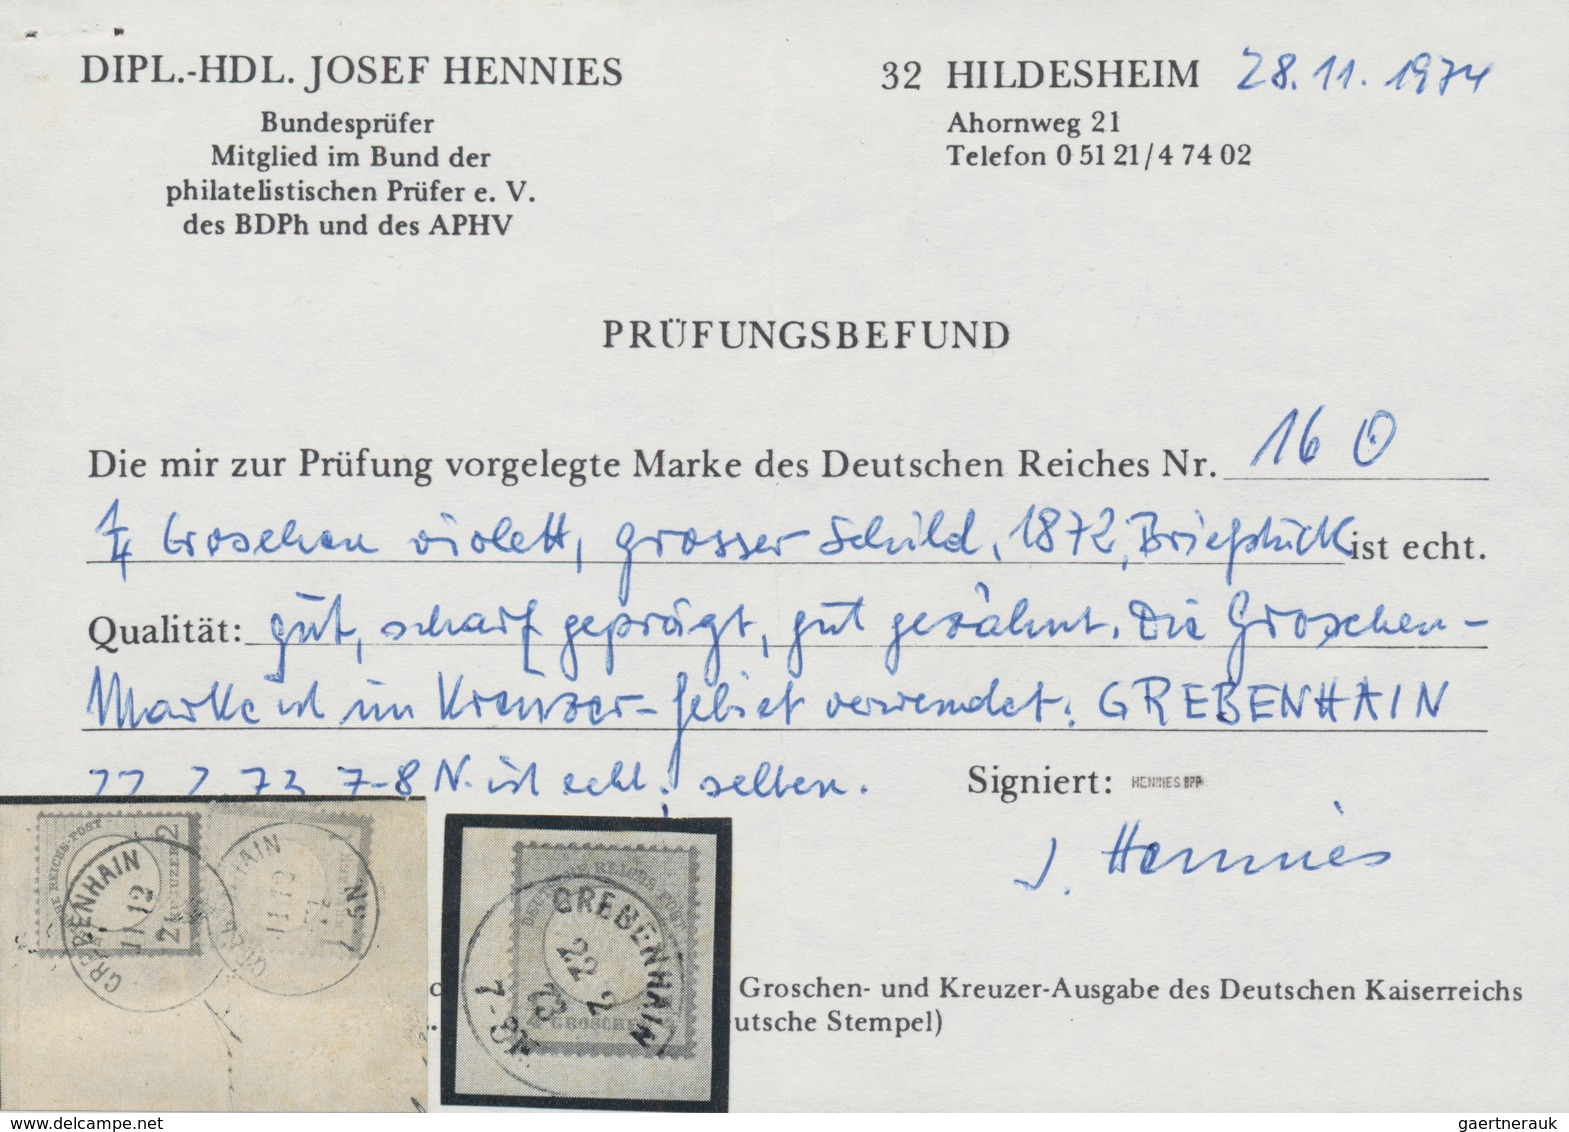 DIPL.-HDL. JOSEF HENNIES
Bundesprüfer
Mitglied im Bund der
philatelistischen Prüfer e. V.
des BDPh und des APHV
32 HILDESHEIM 28.11.1974
Ahornweg 21
Telefon 0 51 21/4 74 02
PRÜFUNGSBEFUND
Die mir zur Prüfung vorgelegte Marke des Deutschen Reiches Nr. 16 O
1/4 Groschen violett, grosser Schild, 1872, Briefstück ist echt.
Qualität: gut, scharf geprägt, gut gezähnt. Die Groschen-
Marke ist im Kreuzer-Gebiet verwendet. GREBENHAIN
7-8 N. ist echt. selten.
Signiert: HENNIES BPP
J. Hennies
GREBENHAIN
11 12
GREBENHAIN
11 12
GREBENHAIN
22 2
73
7-8 N
GROSCHEN
Groschen- und Kreuzer-Ausgabe des Deutschen Kaiserreichs
utsche Stempel)
www.delcampe.net
gaertnerauk